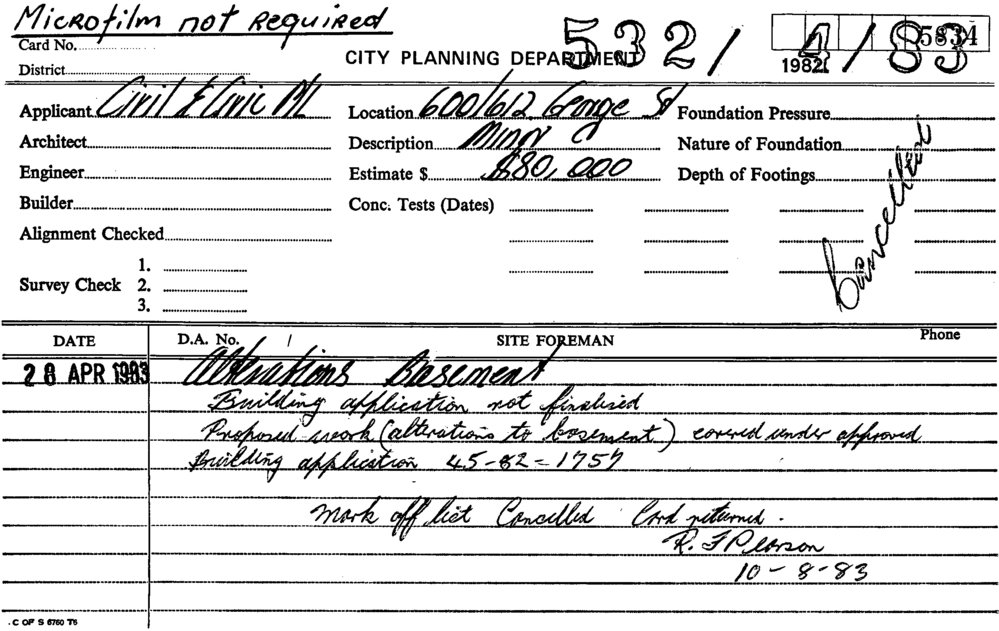 Microfilm not required
Card No.
District
CITY PLANNING DEPARTMENT
532/4/83
1982
5834
Applicant Civil & Civic P/L
Location 600/612 George St
Foundation Pressure
Architect
Description Minor
Nature of Foundation
Engineer
Estimate $ $80,000
Depth of Footings
Builder
Conc. Tests (Dates)
Cancelled
Alignment Checked
Survey Check
1.
2.
3.
DATE
D.A. No. /
SITE FOREMAN
Phone
28 APR 1983
Alterations Basement
Building application not finalised
Proposed work (alterations to basement) covered under approved
Building application 45-82-1757
Mark off list Cancelled Card returned.
R. F Pearson
10-8-83
C OF S 6760 T6